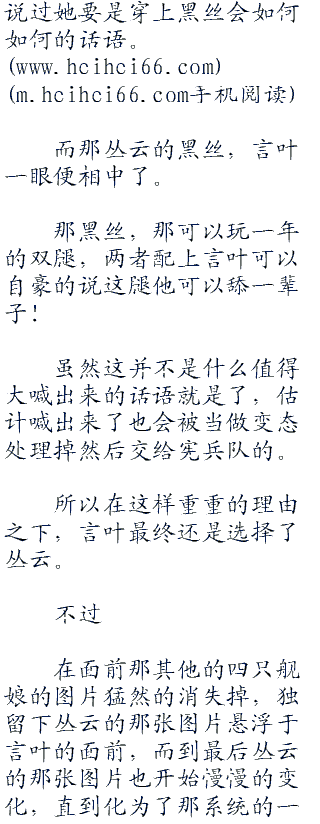 说过她要是穿上黑丝会如何
如何的话语。
(www.hcihci66.com)
(m.hcihci66.com手机阅读)
而那丛云的黑丝，言叶
一眼便相中了。
那黑丝，那可以玩一年
的双腿，两者配上言叶可以
自豪的说这腿他可以舔一辈
子！
虽然这并不是什么值得
大喊出来的话语就是了，估
计喊出来了也会被当做变态
处理掉然后交给宪兵队的。
所以在这样重重的理由
之下，言叶最终还是选择了
丛云。
不过
在面前那其他的四只舰
娘的图片猛然的消失掉，独
留下丛云的那张图片悬浮于
言叶的面前，而到最后丛云
的那张图片也开始慢慢的变
化，直到化为了那系统的一